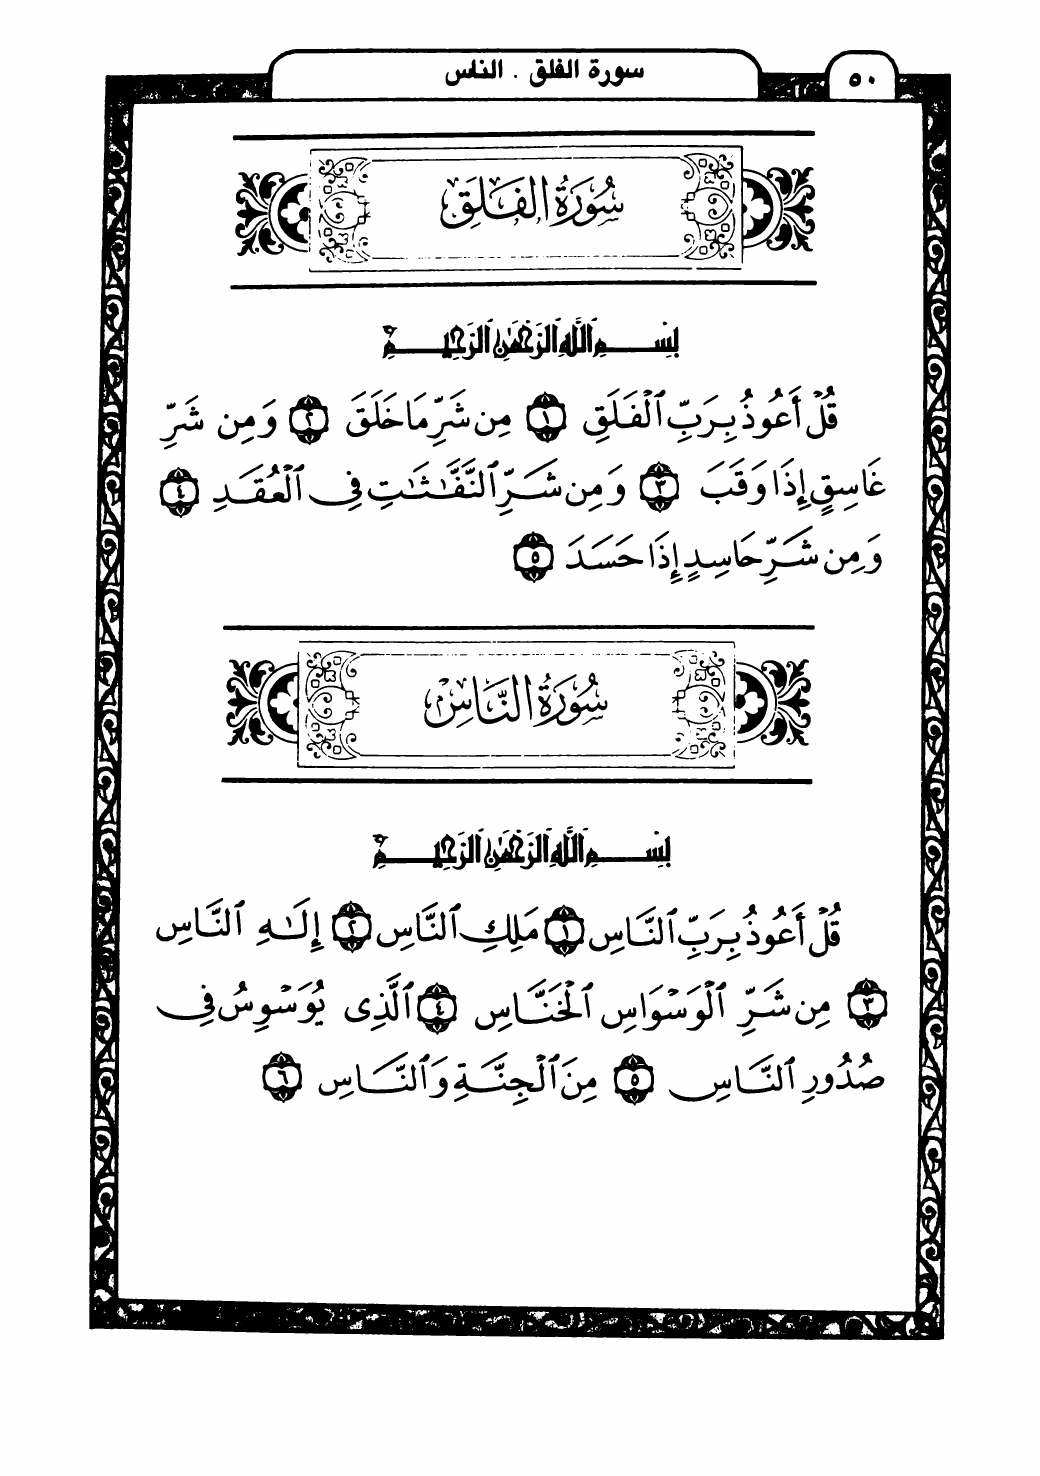 سورة الفلق . الناس
٥٠
سُورَةُ الفَلَقِ
بِسْمِ ٱللَّهِ ٱلرَّحْمَٰنِ ٱلرَّحِيمِ
قُلْ أَعُوذُ بِرَبِّ ٱلْفَلَقِ ١ مِن شَرِّ مَا خَلَقَ ٢ وَمِن شَرِّ
غَاسِقٍ إِذَا وَقَبَ ٣ وَمِن شَرِّ ٱلنَّفَّٰثَٰتِ فِى ٱلْعُقَدِ ٤
وَمِن شَرِّ حَاسِدٍ إِذَا حَسَدَ ٥
سُورَةُ النَّاسِ
بِسْمِ ٱللَّهِ ٱلرَّحْمَٰنِ ٱلرَّحِيمِ
قُلْ أَعُوذُ بِرَبِّ ٱلنَّاسِ ١ مَلِكِ ٱلنَّاسِ ٢ إِلَٰهِ ٱلنَّاسِ
٣ مِن شَرِّ ٱلْوَسْوَاسِ ٱلْخَنَّاسِ ٤ ٱلَّذِى يُوَسْوِسُ فِى
صُدُورِ ٱلنَّاسِ ٥ مِنَ ٱلْجِنَّةِ وَٱلنَّاسِ ٦